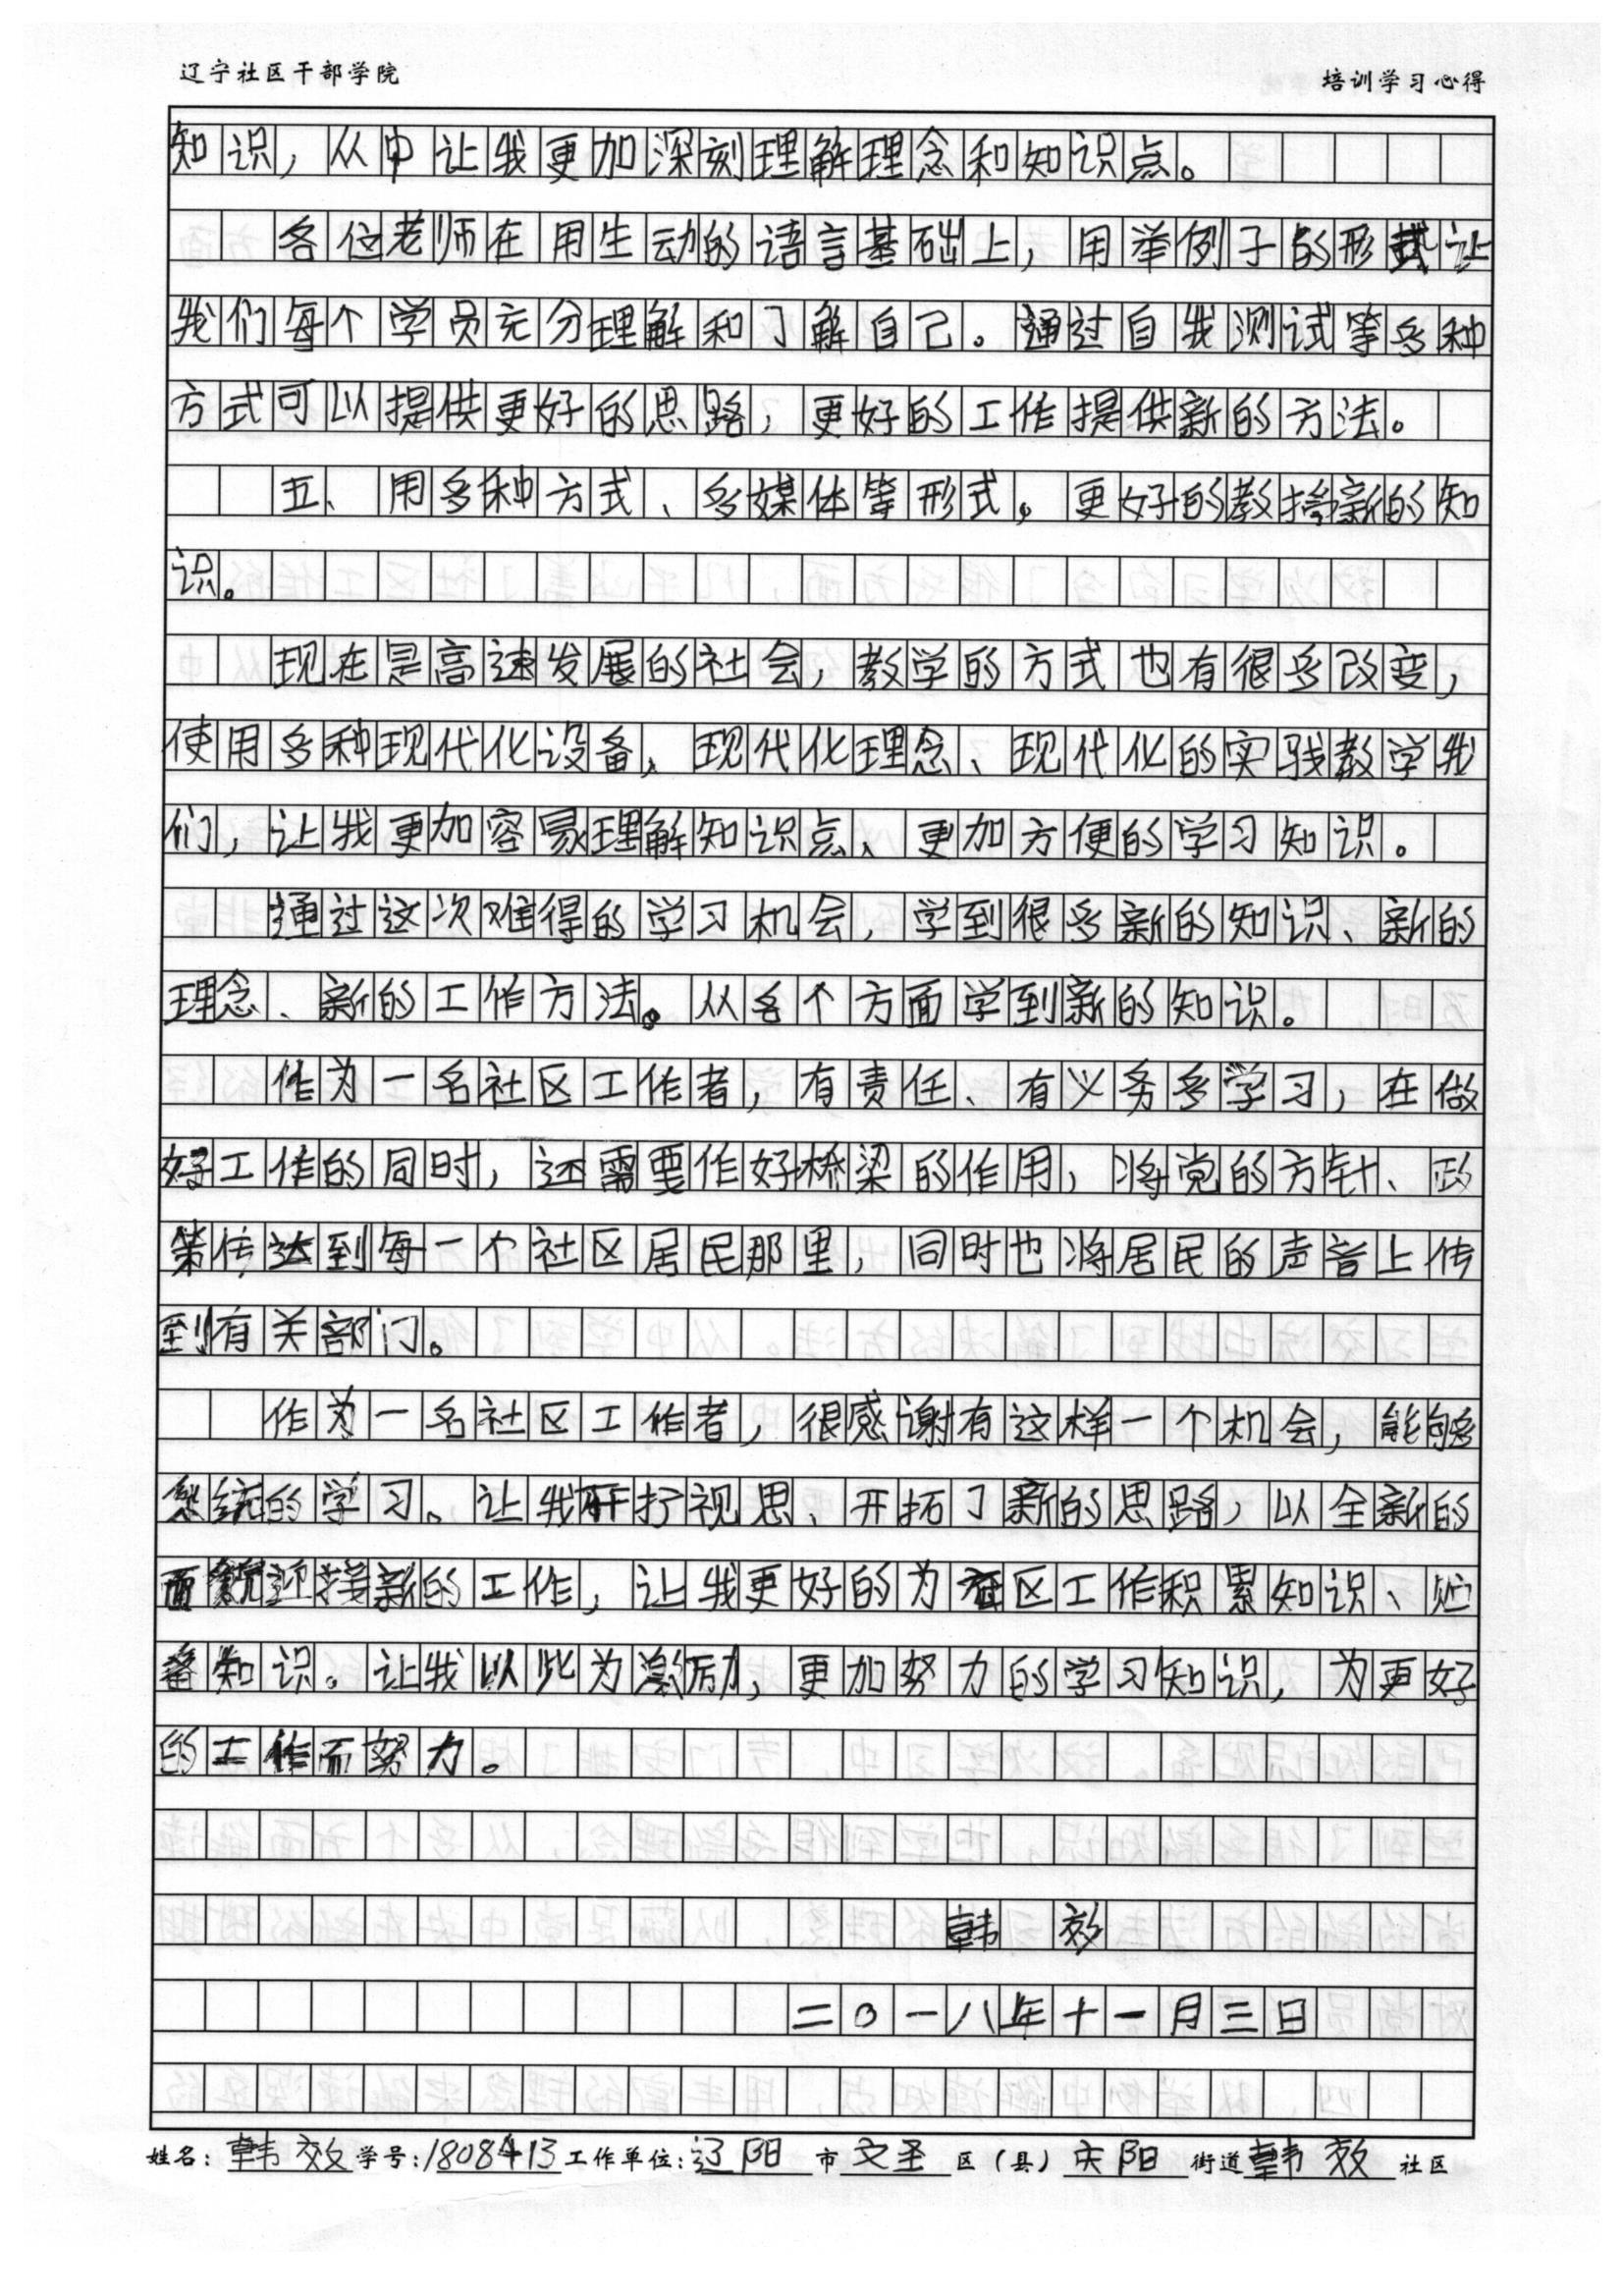 辽宁社区干部学院 培训学习心得
知识，从中让我更加深刻理解理念和知识点。
各位老师在用生动的语言基础上，用举例子的形式让
我们每个学员充分理解和了解自己。通过自我测试等多种
方式可以提供更好的思路，更好的工作提供新的方法。
五、用多种方式、多媒体等形式，更好的教授新的知
识。
现在是高速发展的社会，教学的方式也有很多改变，
使用多种现代化设备、现代化理念、现代化的实践教学我
们，让我更加容易理解知识点、更加方便的学习知识。
通过这次难得的学习机会，学到很多新的知识、新的
理念、新的工作方法。从各个方面学到新的知识。
作为一名社区工作者，有责任、有义务多学习，在做
好工作的同时，还需要作好桥梁的作用，将党的方针、政
策传达到每一个社区居民那里，同时也将居民的声音上传
到有关部门。
作为一名社区工作者，很感谢有这样一个机会，能够
系统的学习。让我开拧视思、开拓了新的思路，以全新的
面貌迎接新的工作，让我更好的为社区工作积累知识、贮
备知识。让我以此为激励，更加努力的学习知识，为更好
的工作而努力。
韩效
二〇一八年十一月三日
姓名：韩效 学号：1808413 工作单位：辽阳 市 文圣 区（县） 庆阳 街道 韩效 社区